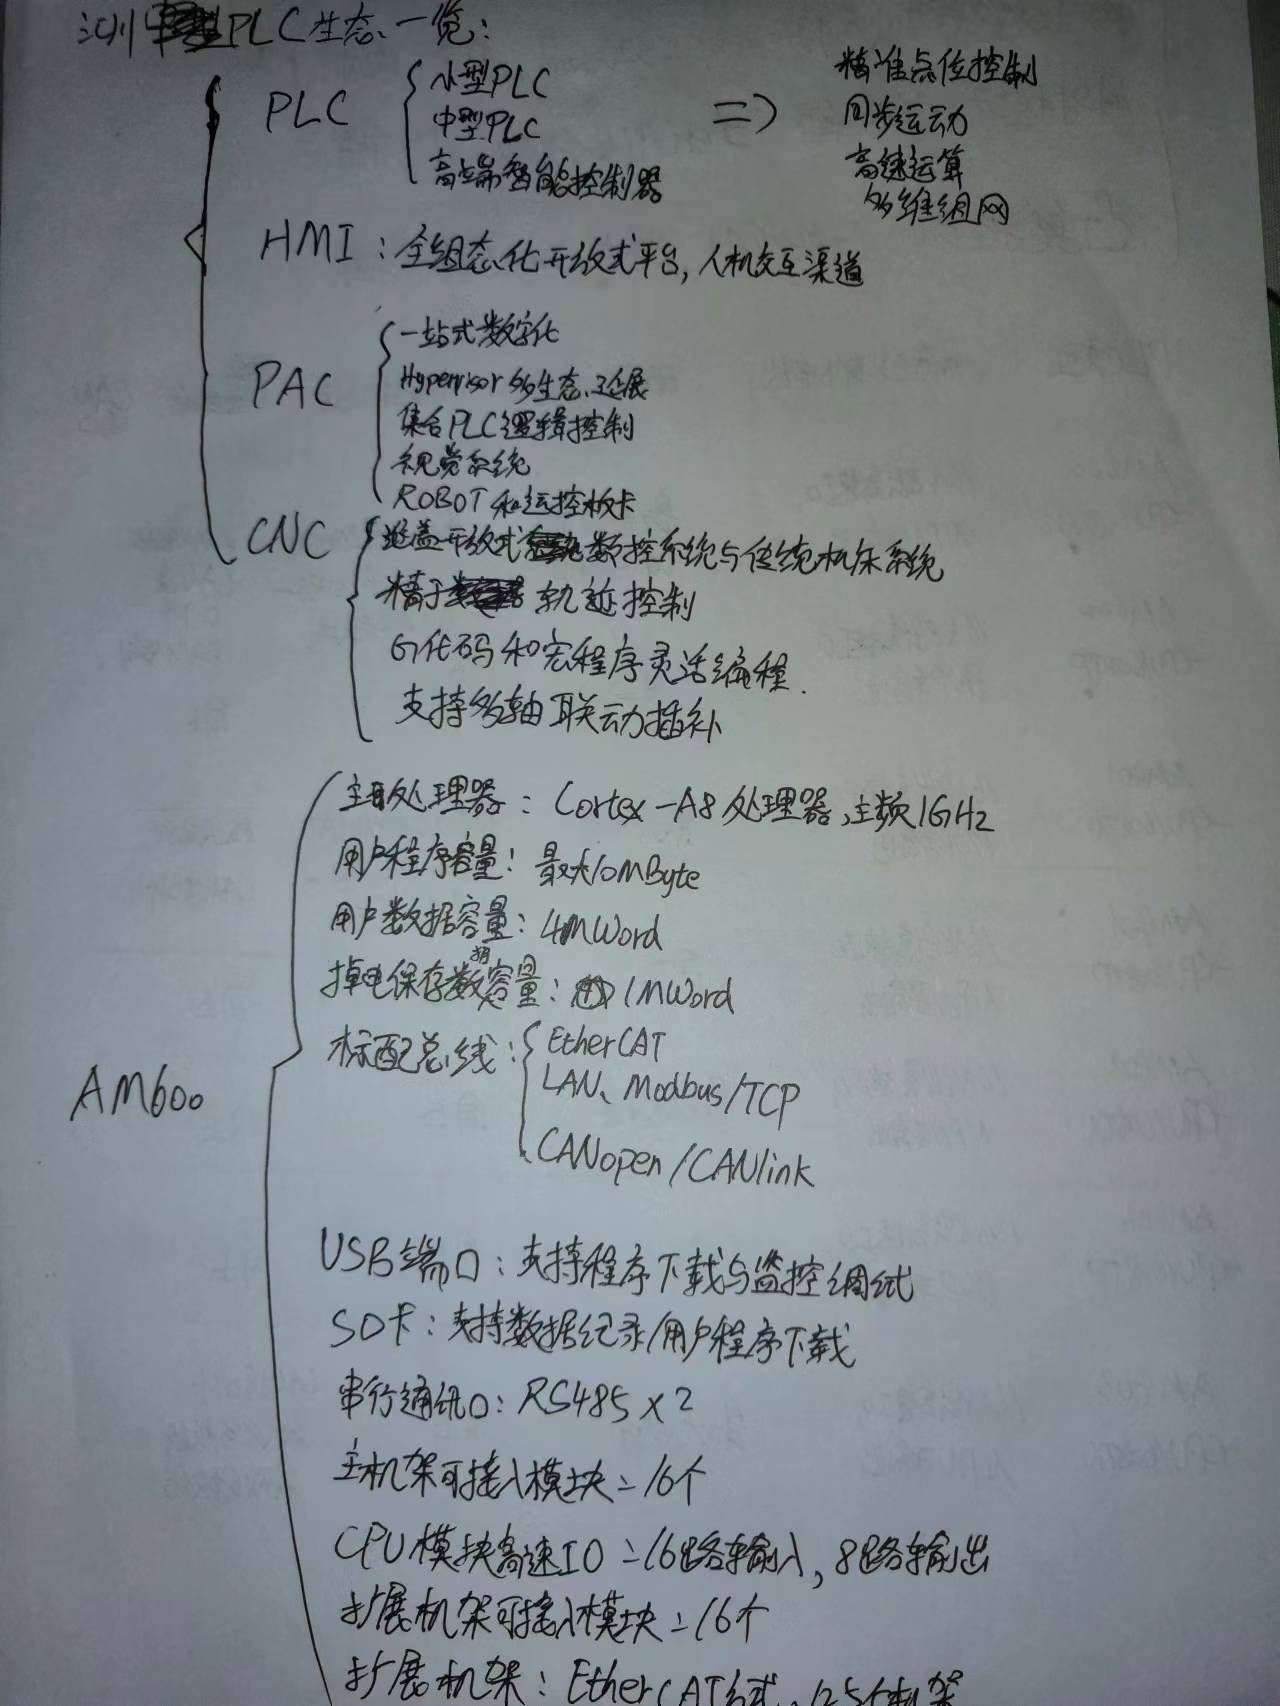 汇川PLC生态一览:
PLC
小型PLC
中型PLC
高端智能控制器
=>
精准点位控制
同步运动
高速运算
多维组网
HMI:全组态化开放式平台,人机交互渠道
PAC
一站式数字化
Hypervisor多生态延展
集合PLC逻辑控制
视觉系统
ROBOT和运控板卡
CNC
涵盖开放式数控系统与传统机床系统
精于轨迹控制
G代码和宏程序灵活编程.
支持多轴联动插补
AM600
主处理器:Cortex-A8处理器,主频1GHz
用户程序容量:最大10MByte
用户数据容量:4MWord
掉电保存数据容量:1MWord
标配总线:
EtherCAT
LAN、Modbus/TCP
CANopen/CANlink
USB端口:支持程序下载与监控调试
SD卡:支持数据纪录/用户程序下载
串行通讯口:RS485×2
主机架可接入模块=16个
CPU模块高速IO=16路输入,8路输出
扩展机架可接入模块=16个
扩展机架:EtherCAT方式,125个机架